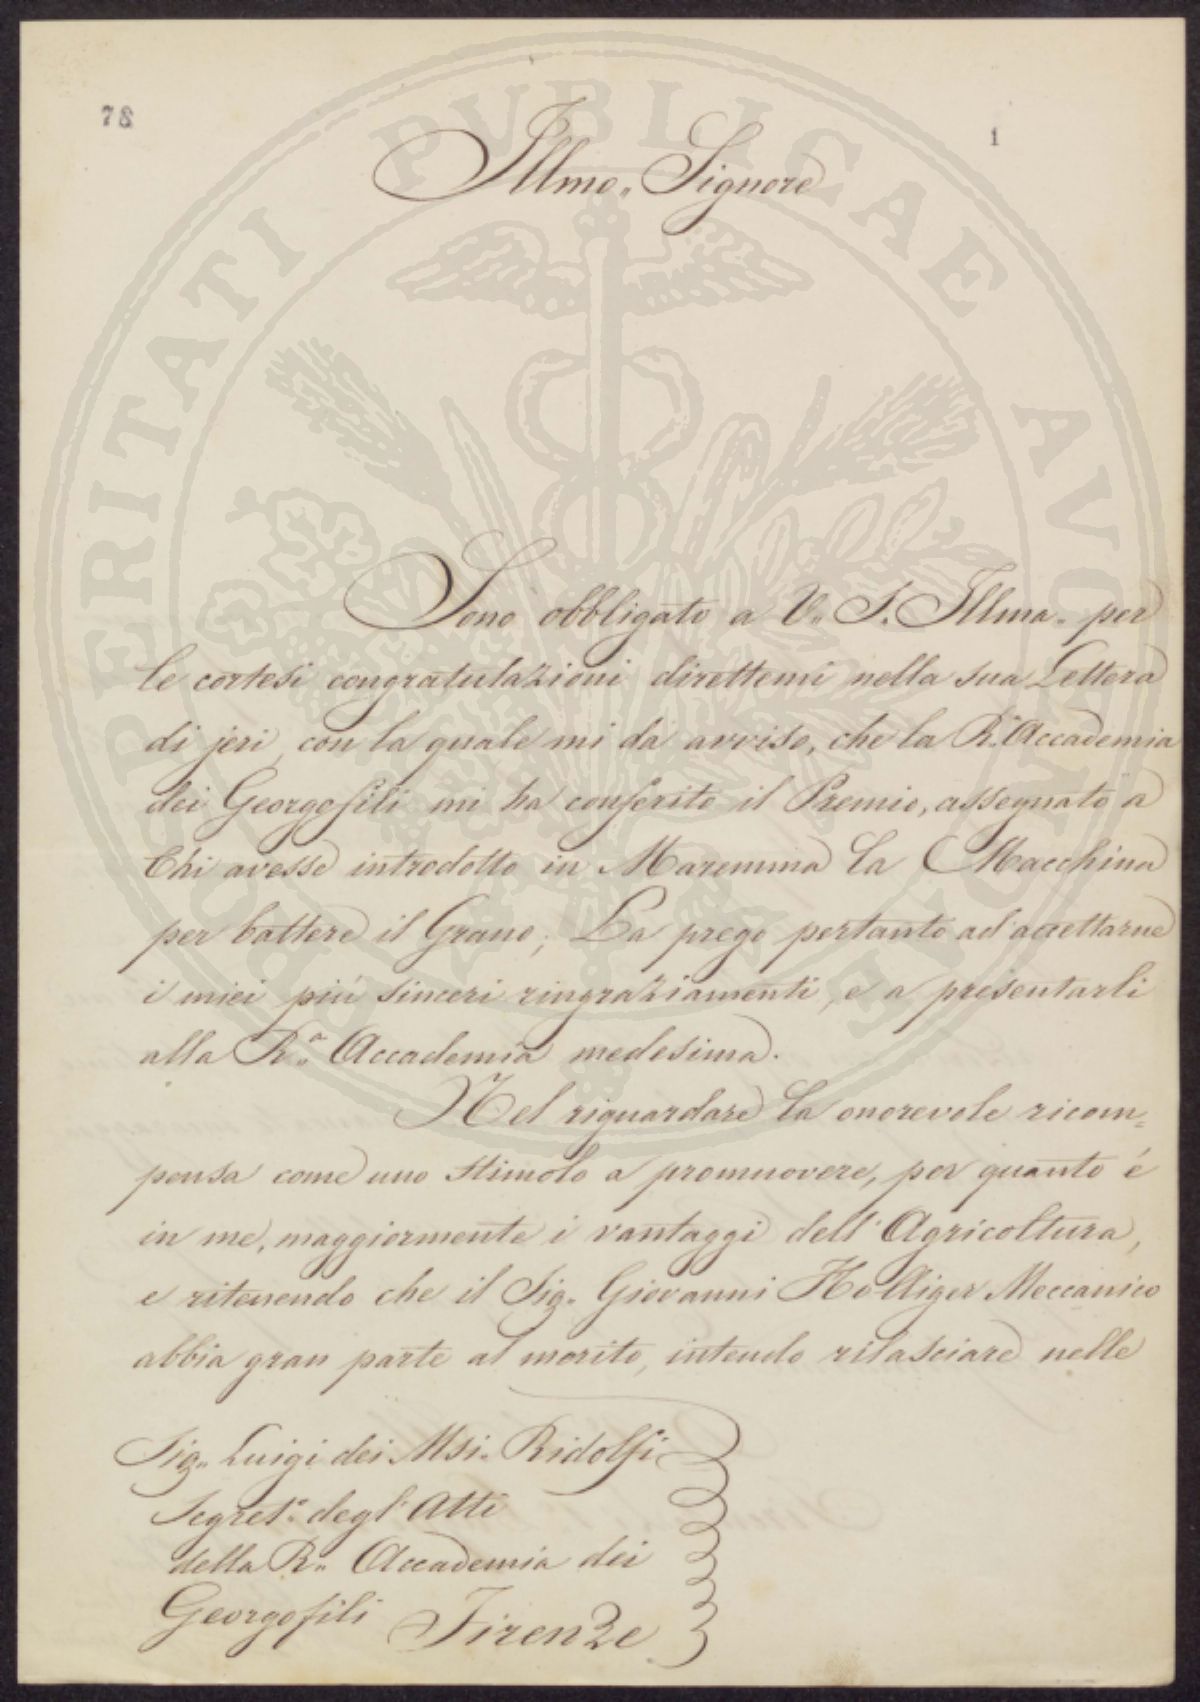 78
1
Illmo. Signore
Sono obbligato a V. S. Illma. per
le cortesi congratulazioni direttemi nella sua Lettera
di jeri, con la quale mi dà avviso, che la R.a Accademia
dei Georgofili mi ha conferito il Premio, assegnato a
Chi avesse introdotto in Maremma la Macchina
per battere il Grano; La prego pertanto ad'accettarne
i miei più sinceri ringraziamenti, e a presentarli
alla R.a Accademia medesima.
Nel riguardare la onorevole ricom=
pensa come uno stimolo a promuovere, per quanto é
in me, maggiormente i vantaggi dell'Agricoltura,
e ritenendo che il Sig. Giovanni Meccanico
abbia gran parte al merito, intendo rilasciare nelle
Sig. Luigi dei Msi. Ridolfi
Segret.o degl'Atti
della R. Accademia dei
Georgofili Firenze
PROSPERITATI PUBLICAE AVGENDAE